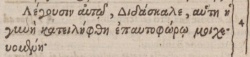 Λέγουσιν αὐτῷ, Διδάσκαλε, αὕτη ἡ
γυνὴ κατειλήφθη ἐπαυτοφώρῳ μοιχευ-
ομένη·
4